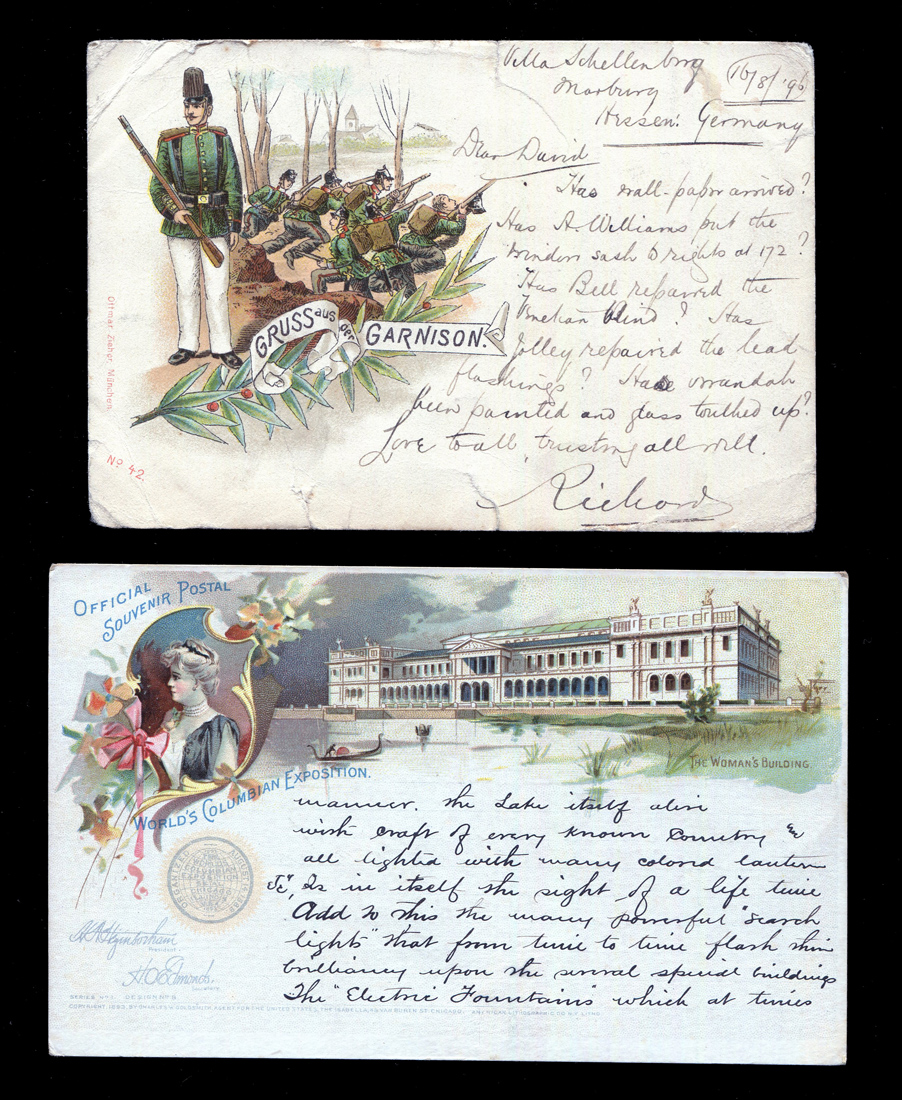 Villa Schellenberg
Marburg
16/8/'96
Hessen: Germany
Dear David
Has wall-paper arrived?
Has A. Williams put the
window sash to rights at 172?
Has Bell repaired the
Venetian blind? Has
Jolley repaired the lead
flashings? Has verandah
been painted and glass touched up?
Love to all, trusting all well.
Richard
GRUSS aus der GARNISON.
Ottmar Zieher, München
No 42.
OFFICIAL
SOUVENIR POSTAL
WORLD'S COLUMBIAN EXPOSITION.
THE WOMAN'S BUILDING.
manner. The Lake itself alive
with craft of every known Country &
all lighted with many colored lantern
&c", Is in itself the sight of a life time
Add to this the many powerful "search
lights" that from time to time flash their
brilliancy upon the several special buildings
The "Electric Fountains" which at times
President
Secretary
SERIES No 1. DESIGN No 8.
COPYRIGHT 1893, BY CHARLES W. GOLDSMITH, AGENT FOR THE UNITED STATES, THE ISABELLA, 45 VAN BUREN ST. CHICAGO. AMERICAN LITHOGRAPHIC CO. N.Y. LITHO.